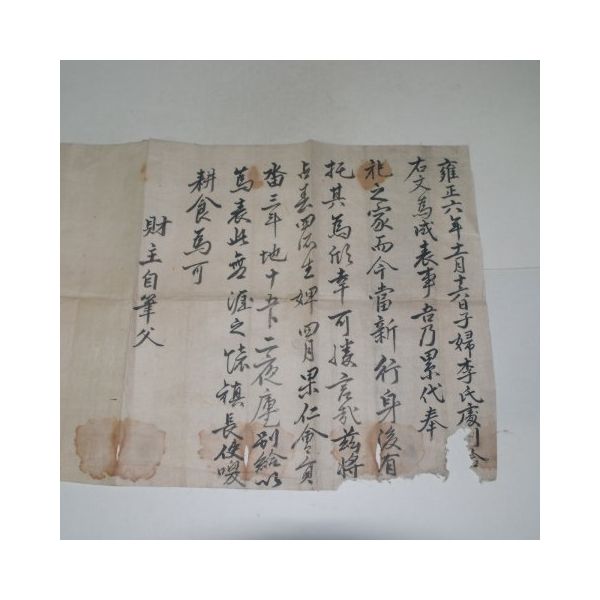 雍正六年十一月十六日子婦李氏處別給
右文爲成表事吾乃累代奉
祀之家而今當新行身後有
托其爲欣幸可勝言哉玆將
占春四所生婢四月果仁會員
畓三斗地十五卜二夜庫別給以
爲表此無涯之懷祺長使喚
耕食爲可
財主自筆父